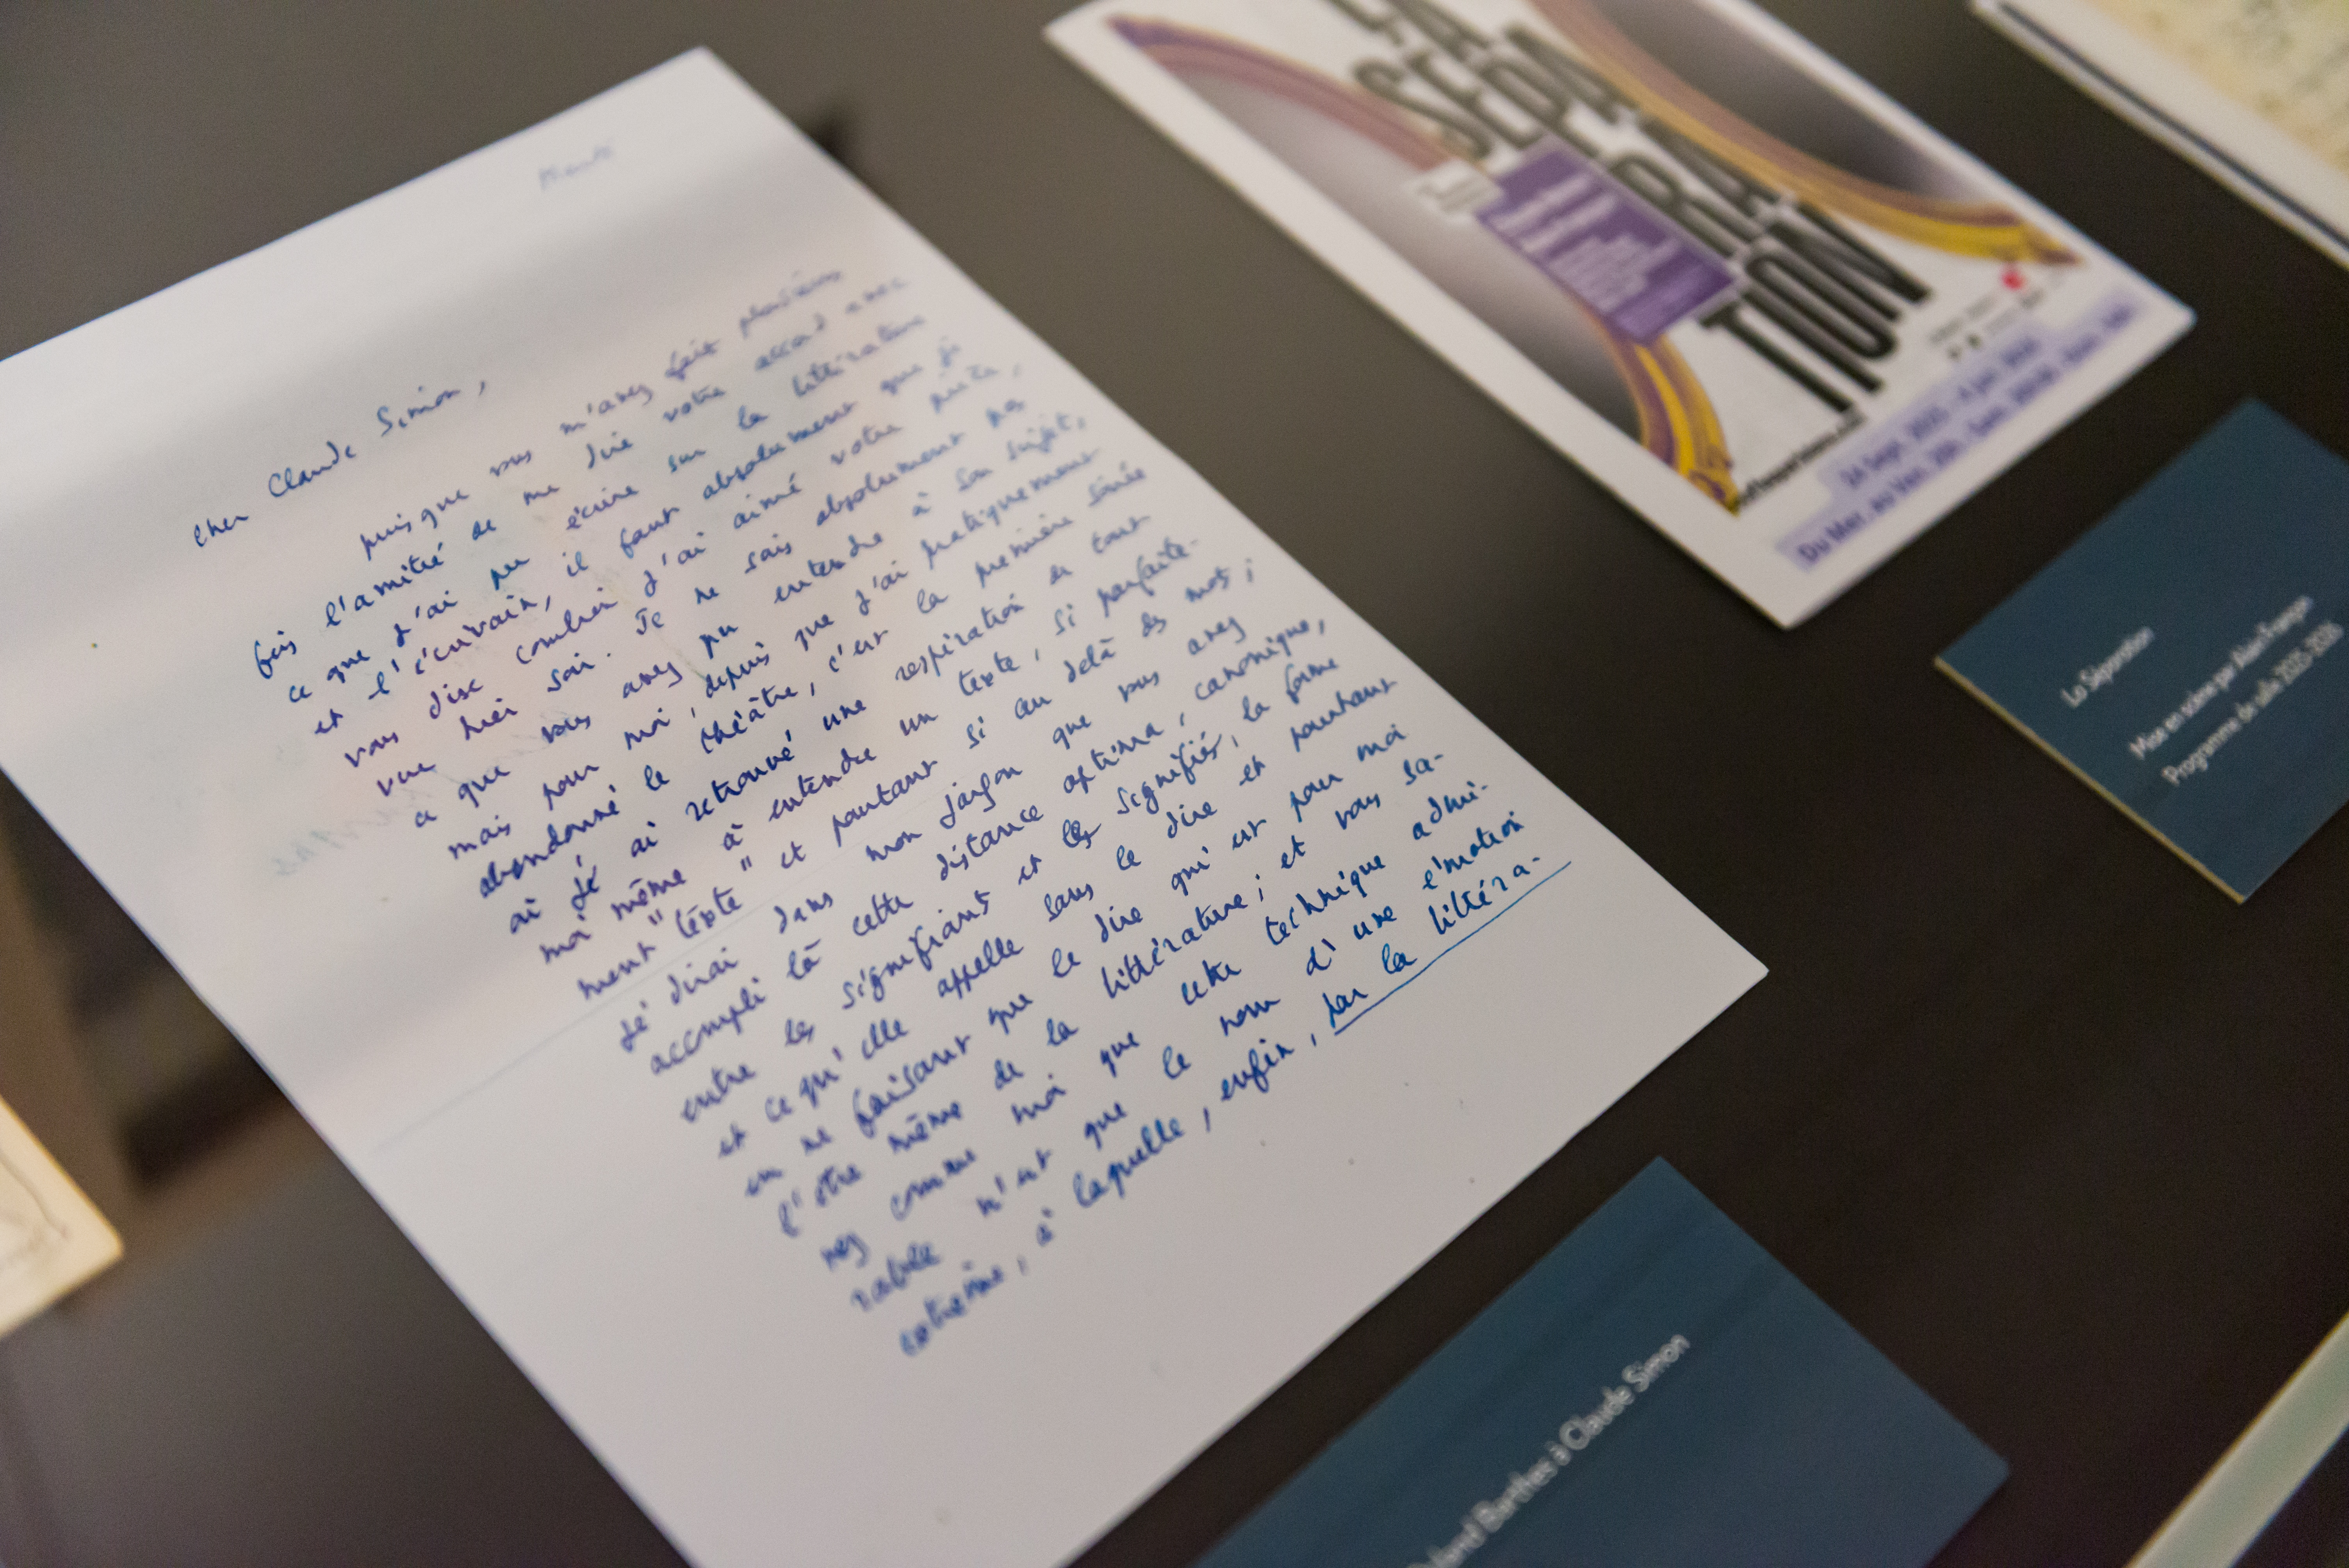 Cher Claude Simon,
puisque vous m'avez fait plusieurs
fois l'amitié de me dire votre accord avec
ce que j'ai pu écrire sur la littérature
et l'écrivain, il faut absolument que je
vous dise combien j'ai aimé votre pièce,
vue hier soir. Je ne sais absolument pas
ce que vous avez pu entendre à son sujet,
mais pour moi, depuis que j'ai pratiquement
abandonné le théâtre, c'est la première soirée
où j'ai retrouvé une respiration et tout
moi-même à entendre un texte, si parfaite-
ment "texte" et pourtant si au delà des mots ;
je dirai dans mon jargon que vous avez
accompli là cette distance optima, canonique,
entre les signifiants et les signifiés, la forme
et ce qu'elle appelle sans le dire et pourtant
en ne faisant que le dire qui est pour moi
l'être même de la littérature ; et vous sa-
vez comme moi que cette technique admi-
rable n'est que le nom d'une émotion
extrême, à laquelle, enfin, par la littéra-
LA
SÉPA
RA
TION
24 Sept. 2025 - 4 Jan. 2026
La Séparation
Mise en scène par Alain Françon
Programme de salle 2025-2026
Roland Barthes à Claude Simon